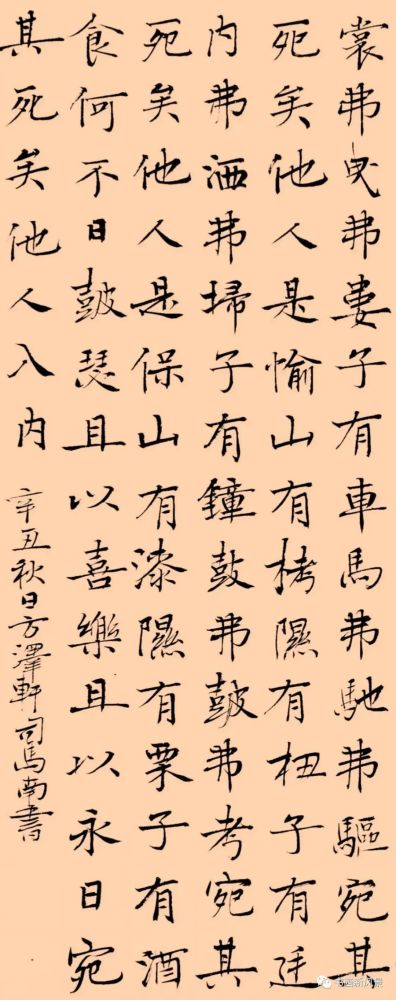 裳弗曳弗婁子有車馬弗馳弗驅宛其
死矣他人是愉山有栲隰有杻子有廷
内弗洒弗掃子有鐘鼓弗皷弗考宛其
死矣他人是保山有漆隰有栗子有酒
食何不日皷瑟且以喜樂且以永日宛
其死矣他人入内
辛丑秋日方澤軒司馬南書
书画新风景